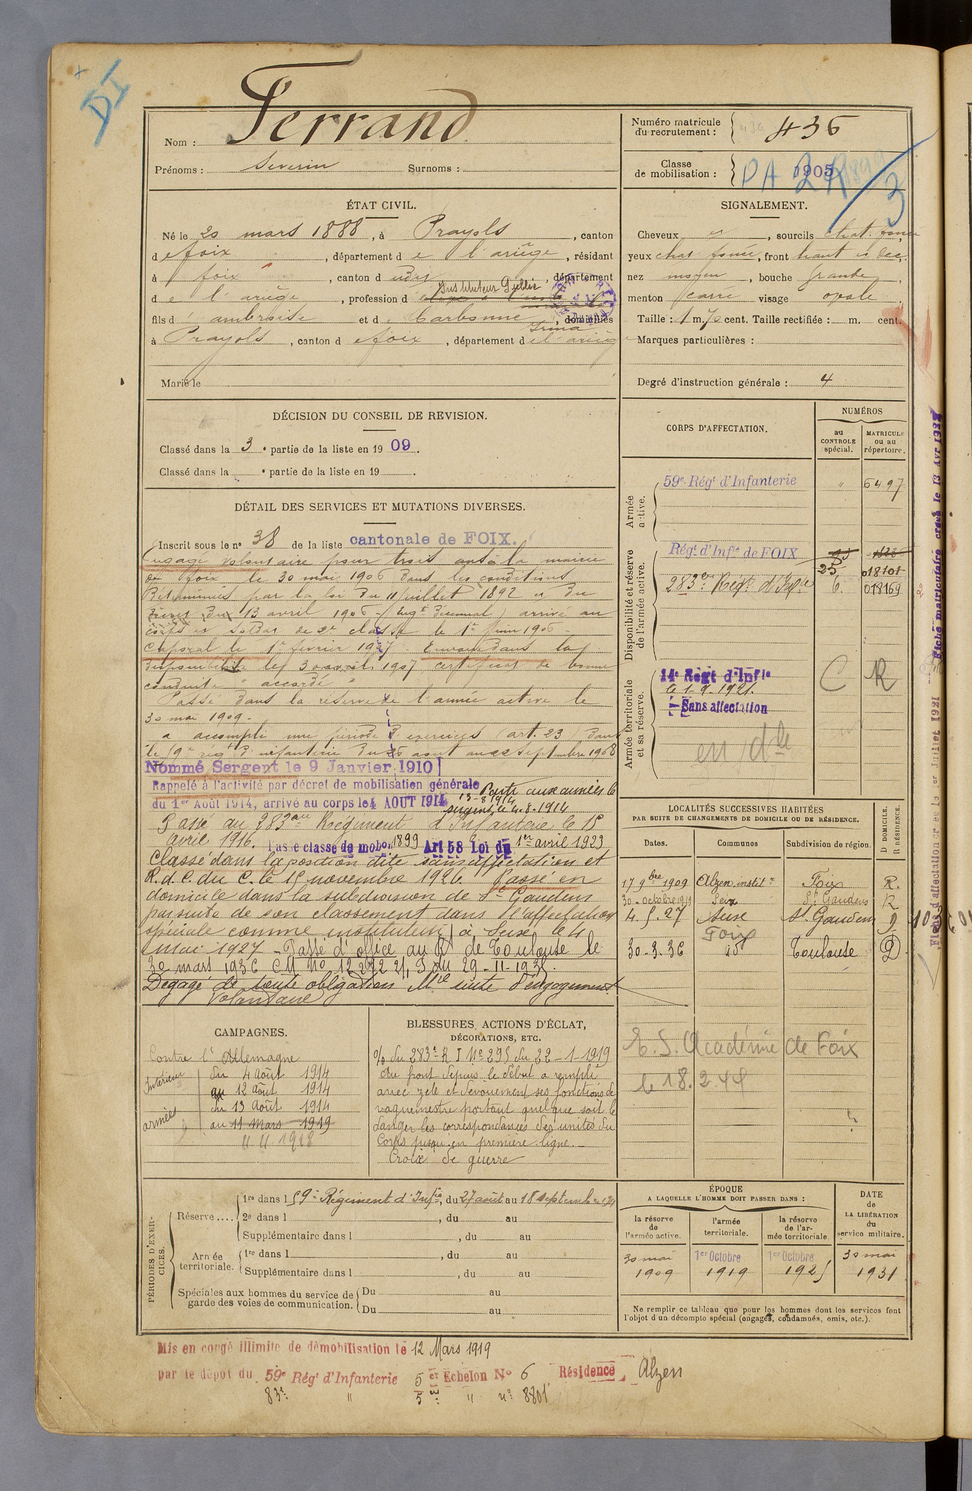 DI
Nom : Ferrand
Prénoms : Severin Surnoms :
Numéro matricule du recrutement : 436
Classe de mobilisation : PA 1905
3
ÉTAT CIVIL.
Né le 20 mars 1888, à Prayols, canton
de foix, département de l'ariège, résidant
à foix, canton d udit, département
de l'ariège, profession d Instituteur
fils d'ambroise et de Carbonne Irma, domiciliés
à Prayols, canton de foix, département de l'ariège
Marié le
SIGNALEMENT.
Cheveux et, sourcils chat. foncé
yeux chat foncé, front haut
nez moyen, bouche grande
menton carré visage ovale
Taille : 1 m. 70 cent. Taille rectifiée : m. cent.
Marques particulières :
Degré d'instruction générale : 4
DÉCISION DU CONSEIL DE REVISION.
Classé dans la 3e partie de la liste en 1909.
Classé dans la e partie de la liste en 19
DÉTAIL DES SERVICES ET MUTATIONS DIVERSES.
Inscrit sous le no 38 de la liste cantonale de FOIX.
Engagé volontaire pour trois ans à la mairie
de Foix le 30 mai 1906 dans les conditions
Déterminées par la loi du 11 juillet 1892 et du
13 avril 1906 arrivé au
corps et soldat de 2e classe le 1er juin 1906
Caporal le 1er février 1907. Envoyé dans la
disponibilité le 1907 certificat de bonne
conduite " accordé "
Passé dans la réserve de l'armée active le
30 mai 1909.
a accompli une période d'exercices (art. 23) dans
le d'infanterie du 26 août au 22 septembre 1908
Nommé Sergent le 9 Janvier 1910
Rappelé à l'activité par décret de mobilisation générale
du 1er Août 1914, arrivé au corps le 4 AOUT 1914 Parti aux armées le
13-8-1914
sergent le 4.8.1914
Passé au 283ème Régiment d'Infanterie le 1er
avril 1916. Passé classe de mobon 1899 Art 58 Loi du 1er avril 1923
Classé dans la position dite sans affectation et
R. d. C. du C. le 15 novembre 1926. Passé en
domicile dans la subdivision de St Gaudens
par suite de son classement dans l'affectation
spéciale comme instituteur à Seix le 4
mai 1927 - Passé d'office au R. de Toulouse le
30 mars 1936 C.M. No 12272 du 29-11-193
Dégagé de toute obligation Mre suite d'engagement
Volontaire
CORPS D'AFFECTATION.
NUMÉROS
au CONTROLE spécial.
MATRICULE ou au répertoire.
Armée active.
59e Régt d'Infanterie " 6497
Disponibilité et réserve de l'armée active.
Régt d'Infie de FOIX
25 018101
283ème Régt d'Infie 6. 018169
Armée territoriale et sa réserve.
14e Régt d'Infie
le 1-9-1921.
Sans affectation
C R
en dle
LOCALITÉS SUCCESSIVES HABITÉES
PAR SUITE DE CHANGEMENTS DE DOMICILE OU DE RÉSIDENCE.
Dates. Communes Subdivision de région. D DOMICILE. R RÉSIDENCE.
17 9bre 1909 Alzen instit. Foix R.
30 octobre 1919 Seix St Gaudens R
4.5.27 Seix St Gaudens D
30-3.36 Foix Toulouse D
E.S. Académie de Foix
le 18.2.41
CAMPAGNES.
Contre l'Allemagne
Intérieur du 4 août 1914
au 12 août 1914
armées du 13 août 1914
au 11 Mars 1919
BLESSURES, ACTIONS D'ÉCLAT,
DÉCORATIONS, ETC.
O/ du 283e R I No 295 du 22-1-1919
Au front depuis le début a rempli
avec zèle et dévouement ses fonctions de
vaguemestre portant quel que soit le
danger les correspondances des unités du
Corps jusqu'en première ligne.
Croix de guerre
PÉRIODES D'EXERCICES.
Réserve....
1re dans le 59e Régiment d'Infie, du 27 août au 18 septembre
2e dans l , du au
Supplémentaire dans l , du au
Armée territoriale.
1re dans l , du au
Supplémentaire dans l , du au
Spéciales aux hommes du service de garde des voies de communication.
Du au
Du au
ÉPOQUE
A LAQUELLE L'HOMME DOIT PASSER DANS :
la réserve de l'armée active. l'armée territoriale. la réserve de l'armée territoriale.
DATE DE LA LIBÉRATION du service militaire.
30 mai 1909
1er Octobre 1919
1er Octobre 1925
30 mai 1931
Ne remplir ce tableau que pour les hommes dont les services font
l'objet d'un décompte spécial (engagés, condamnés, omis, etc.).
Mis en congé illimité de démobilisation le 12 Mars 1919
par le dépôt du 59e Régt d'Infanterie 5e Echelon No 6 Résidence Alzen
83e " 5e " no 8801